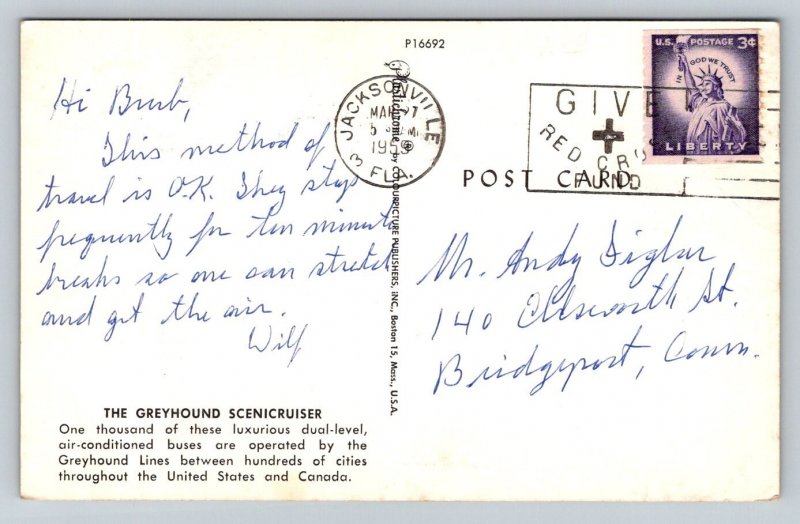 P16692
Hi Burb,
This method of
travel is O.K. They stop
frequently for ten minute
breaks so one can stretch
and get the air.
Wilf
THE GREYHOUND SCENICRUISER
One thousand of these luxurious dual-level,
air-conditioned buses are operated by the
Greyhound Lines between hundreds of cities
throughout the United States and Canada.
Plastichrome ® by COLOURPICTURE PUBLISHERS, INC., Boston 15, Mass., U.S.A.
JACKSONVILLE
MAR 27
5 PM
1959
3 FLA.
GIVE
RED CROSS
FUND
U.S. POSTAGE 3¢
IN GOD WE TRUST
LIBERTY
POST CARD
Mr. Andy Siglar
140 Ellsworth St.
Bridgeport, Conn.